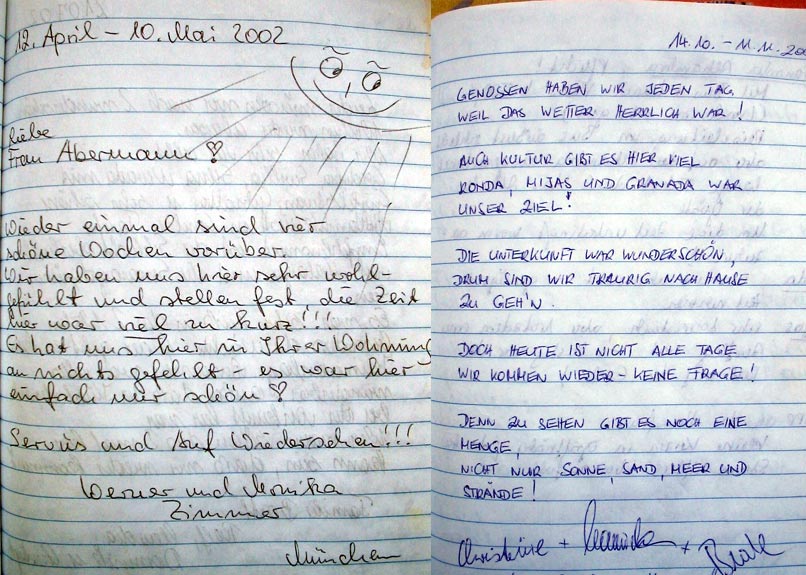 12. April – 10. Mai 2002
Liebe
Frau Abermann!
Wieder einmal sind vier
schöne Wochen vorüber.
Wir haben uns hier sehr wohl-
gefühlt und stellen fest, die Zeit
hier war viel zu kurz!!!
Es hat uns hier in Ihrer Wohnung
an nichts gefehlt – es war hier
einfach nur schön!
Servus und Auf Wiedersehen!!!
Werner und Monika
Zimmer
München
14.10. – 11.11.
GENOSSEN HABEN WIR JEDEN TAG
WEIL DAS WETTER HERRLICH WAR!
AUCH KULTUR GIBT ES HIER VIEL
RONDA, MIJAS UND GRANADA WAR
UNSER ZIEL!
DIE UNTERKUNFT WAR WUNDERSCHÖN,
DRUM SIND WIR TRAURIG NACH HAUSE
ZU GEH'N.
DOCH HEUTE IST NICHT ALLE TAGE
WIR KOMMEN WIEDER – KEINE FRAGE!
DENN ZU SEHEN GIBT ES NOCH EINE
MENGE,
NICHT NUR SONNE, SAND, MEER UND
STRÄNDE!
Christine + +